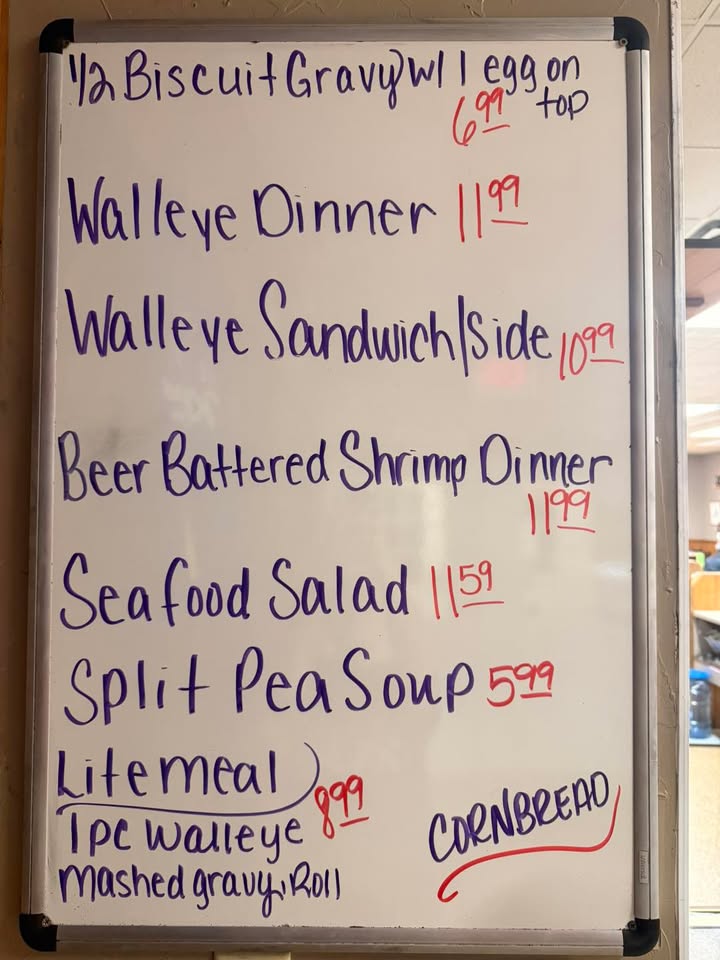 1/2 Biscuit Gravy w/ 1 egg on
top
6.99
Walleye Dinner 11.99
Walleye Sandwich/Side 10.99
Beer Battered Shrimp Dinner
11.99
Seafood Salad 11.59
Split Pea Soup 5.99
Lite meal
8.99
1 pc walleye
mashed gravy, Roll
CORNBREAD